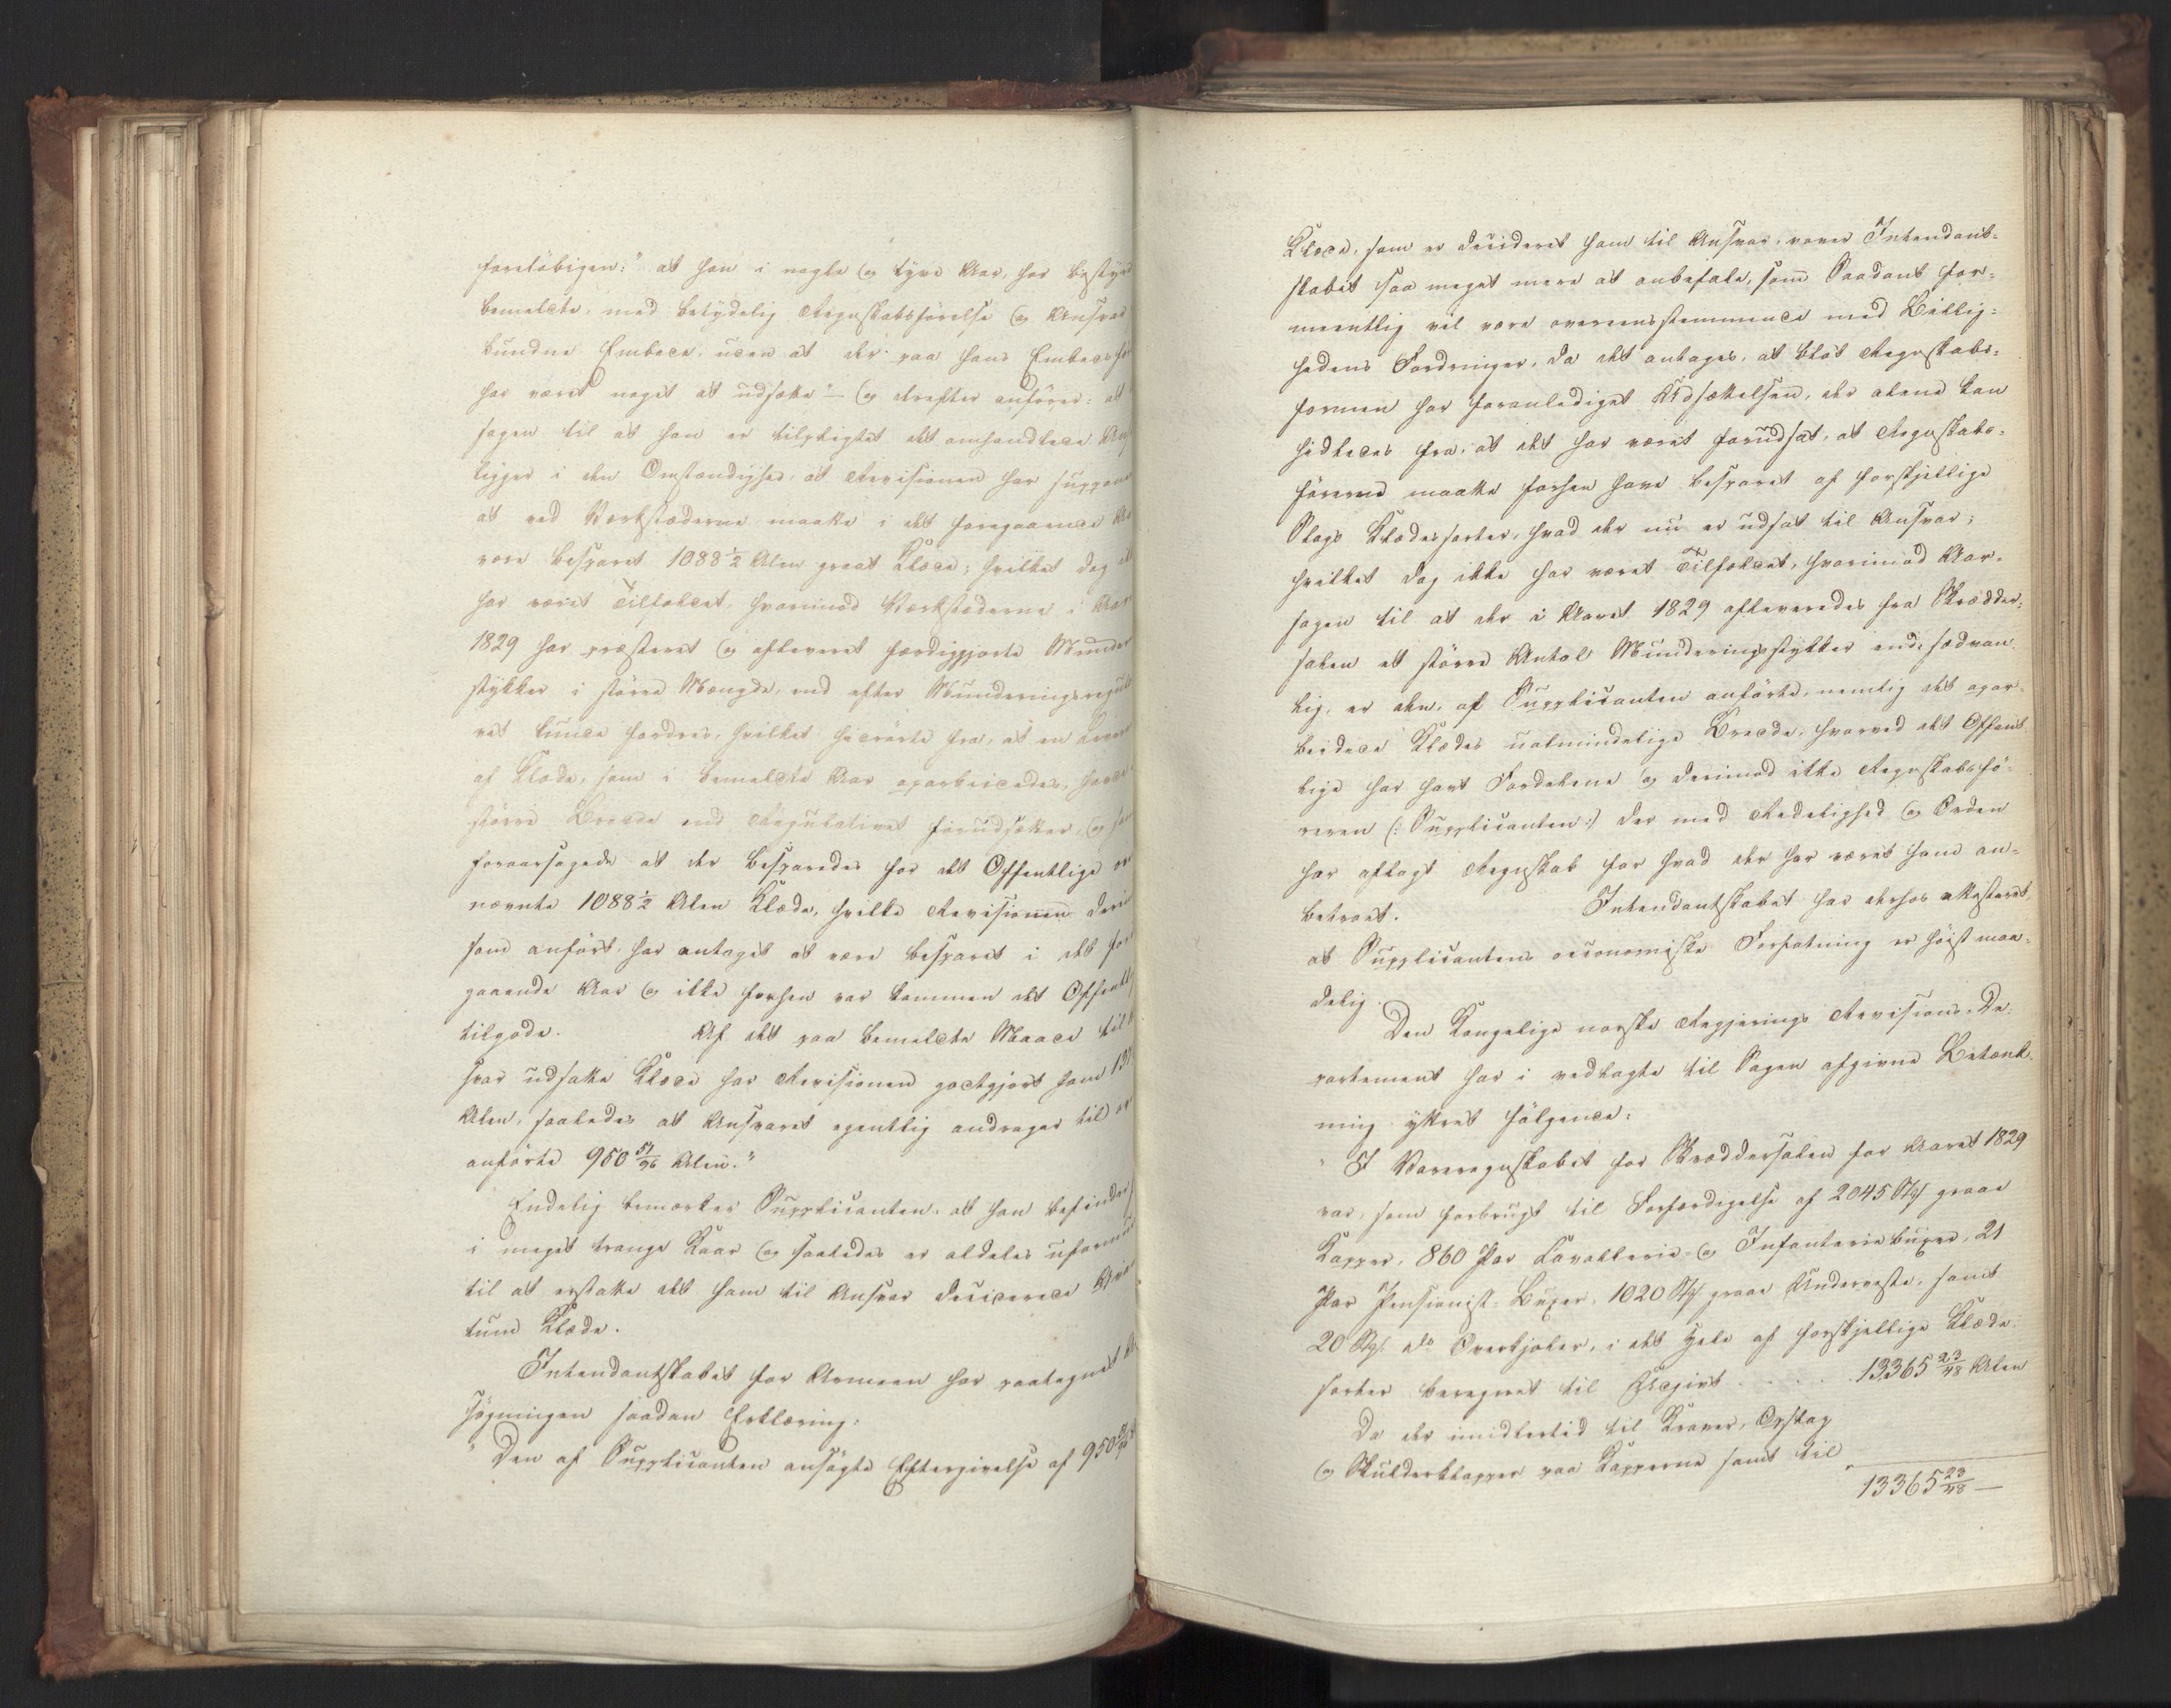 foreløbigen: "at han i nogle og tyve Aar, har bestyret
bemeldte, med betydelig Regnskabsførelse og Ansvar
bundne Embede, uden at der paa hans Embeds
har været noget at udsætte" — og derefter anfører: at
sagen til at han er tilpligtet det omhandlede
ligger i den Omstændighed, at Revisionen har suppone
at ved Værkstæderne maatte i det foregaaende
være besparet 1088½ Alen graat Klæde; hvilket dog
har været Tilfældet, hvorimod Værkstæderne i Aar
1829 har præsteret og afleveret færdiggjorte Munder
stykker i større Mængde, end efter Munderingsregula
vet kunde fordres, hvilket hidrørte fra, at en
af Klæde, som i bemeldte Aar oparbeidedes, havde
større Bredde end Regulativet forudsætter, og
foraarsagede at der besparedes for det Offentlige
nævnte 1088½ Alen Klæde, hvilke Revisionen
som anført, har antaget at være besparet i det for
gaaende Aar og ikke forhen var kommen det Offentl
tilgode. Af det paa bemeldte Maade til
svar udsatte Klæde har Revisionen godtgjort ham
Alen, saaledes at Ansvaret egentlig andrager til
anførte 950 51/96 Alen."
Endelig bemærker Supplicanten, at han befinder
i meget trange Kaar og saaledes er aldeles uformu
til at erstatte det ham til Ansvar deciderede Qvan
tum Klæde.
Intendantskabet for Armeen har paategnet
søgningen saadan Erklæring:
"Den af Supplicanten ansøgte Eftergivelse af 950
Klæde, som er decideret ham til Ansvar, vover Intendant-
skabet saa meget mere at anbefale, som Saadant for-
meentlig vil være overeensstemmende med Billig-
hedens Fordringer, da det antages, at blot Regnskabs-
formen har foranlediget Udsættelsen, der alene kan
hidledes fra, at det har været forudsat, at Regnskabs-
førerne maatte forhen have besparet af forskjellige
Slags Klædessorter, hvad der nu er udsat til Ansvar;
hvilket dog ikke har været Tilfældet, hvorimod Aar-
sagen til at der i Aaret 1829 afleveredes fra Skrædder-
salen et større Antal Munderingsstykker end sædvan
lig, er den, af Supplicanten anførte, nemlig det opar-
beidede Klædes ualmindelige Bredde, hvorved det Offent
lige har havt Fordelene og derimod ikke Regnskabsfø-
reren (: Supplicanten :) der med Redelighed og Orden
har aflagt Regnskab for hvad der har været ham an-
betroet. Intendantskabet har derhos attesteret,
at Supplicantens oeconomiske Forfatning er høist maa-
delig.
Den Kongelige norske Regjerings Revisions-De-
partement har i vedlagte til Sagen afgivne Betænk-
ning yttret følgende:
"I Vareregnskabet for Skræddersalen for Aaret 1829
var, som forbrugt til Forfærdigelse af 2045 Stk graae
Kapper, 860 Par Cavallerie- og Infanteriebuxer, 21
Par Pensionist-Buxer, 1020 Stk graae Underveste, samt
20 Stk do Overkjoler, i det Hele af forskjellige Klæde-
sorter beregnet til Udgivt . . . . . 13,365 23/48 Alen
Da der imidlertid til Kraver, Opslag
og Skulderklapper paa Kapperne samt til
13365 23/48 —